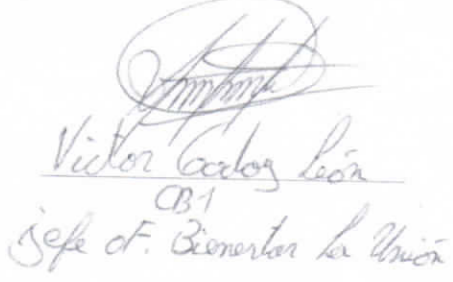 Victor Godoy León
CB1
Jefe of. Bienestar La Unión